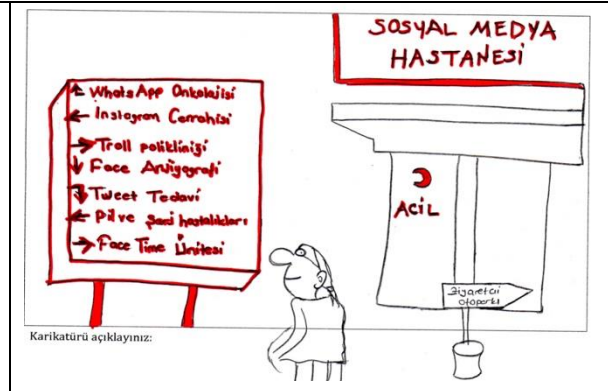 SOSYAL MEDYA
HASTANESİ
WhatsApp Onkolojisi
Instagram Cerrahisi
Troll polikliniği
Face Anjiyografi
Tweet Tedavi
Pil ve Şarj hastalıkları
Face Time Ünitesi
ACİL
Ziyaretçi
otoparkı
Karikatürü açıklayınız: